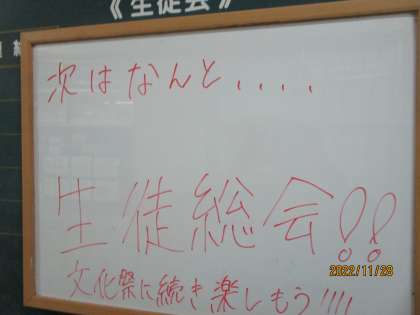 《生徒会》
次はなんと、、、、
生徒総会!!
文化祭に続き楽しもう!!!!
2022/11/28